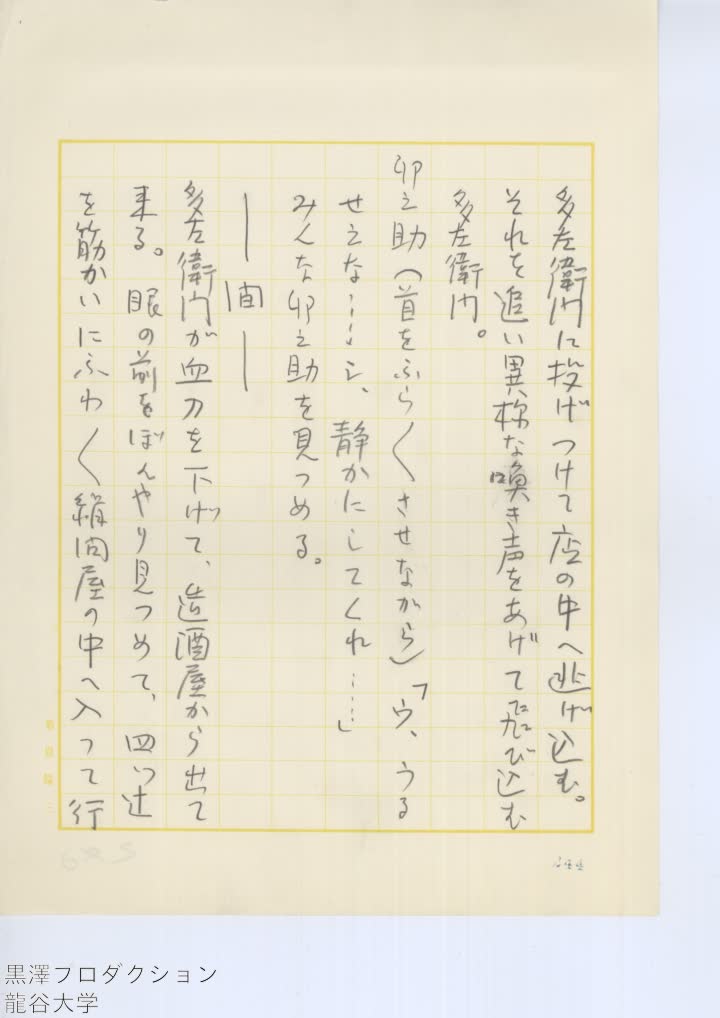 多左衛門に投げつけて店の中へ逃げ込む。
それを追い異様な喚き声をあげて飛び込む
多左衛門。
卯之助（首をふら〱させながら）「ウ、うる
せえな……シ、静かにしてくれ……」
みんな卯之助を見つめる。
―間―
多左衛門が血刀を下げて、造酒屋から出て
来る。眼の前をぼんやり見つめて、四つ辻
を筋かいにふわ〱絹問屋の中へ入って行
黒澤プロダクション
龍谷大学